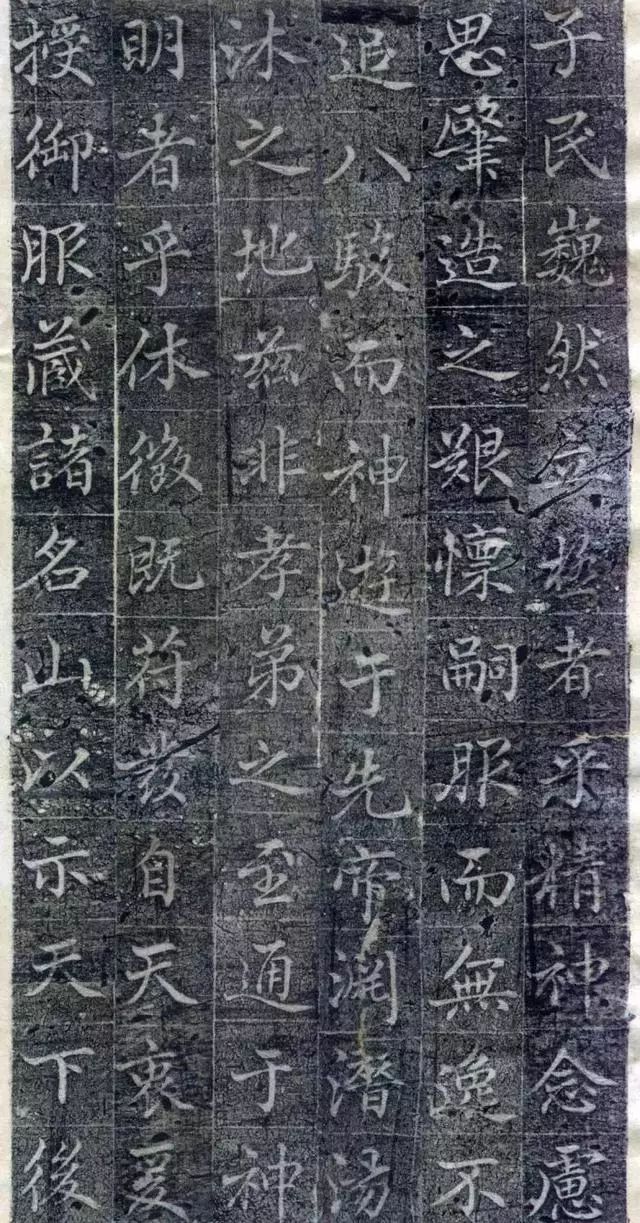 子民巍然立極者乎精神念慮
思肇造之艱懍嗣服而無逸不
追八駿而神遊于先帝渊潛湯
沐之地茲非孝弟之至通于神
明者乎休徵既符發自天衷爰
授御服蔵諸名山以示天下後